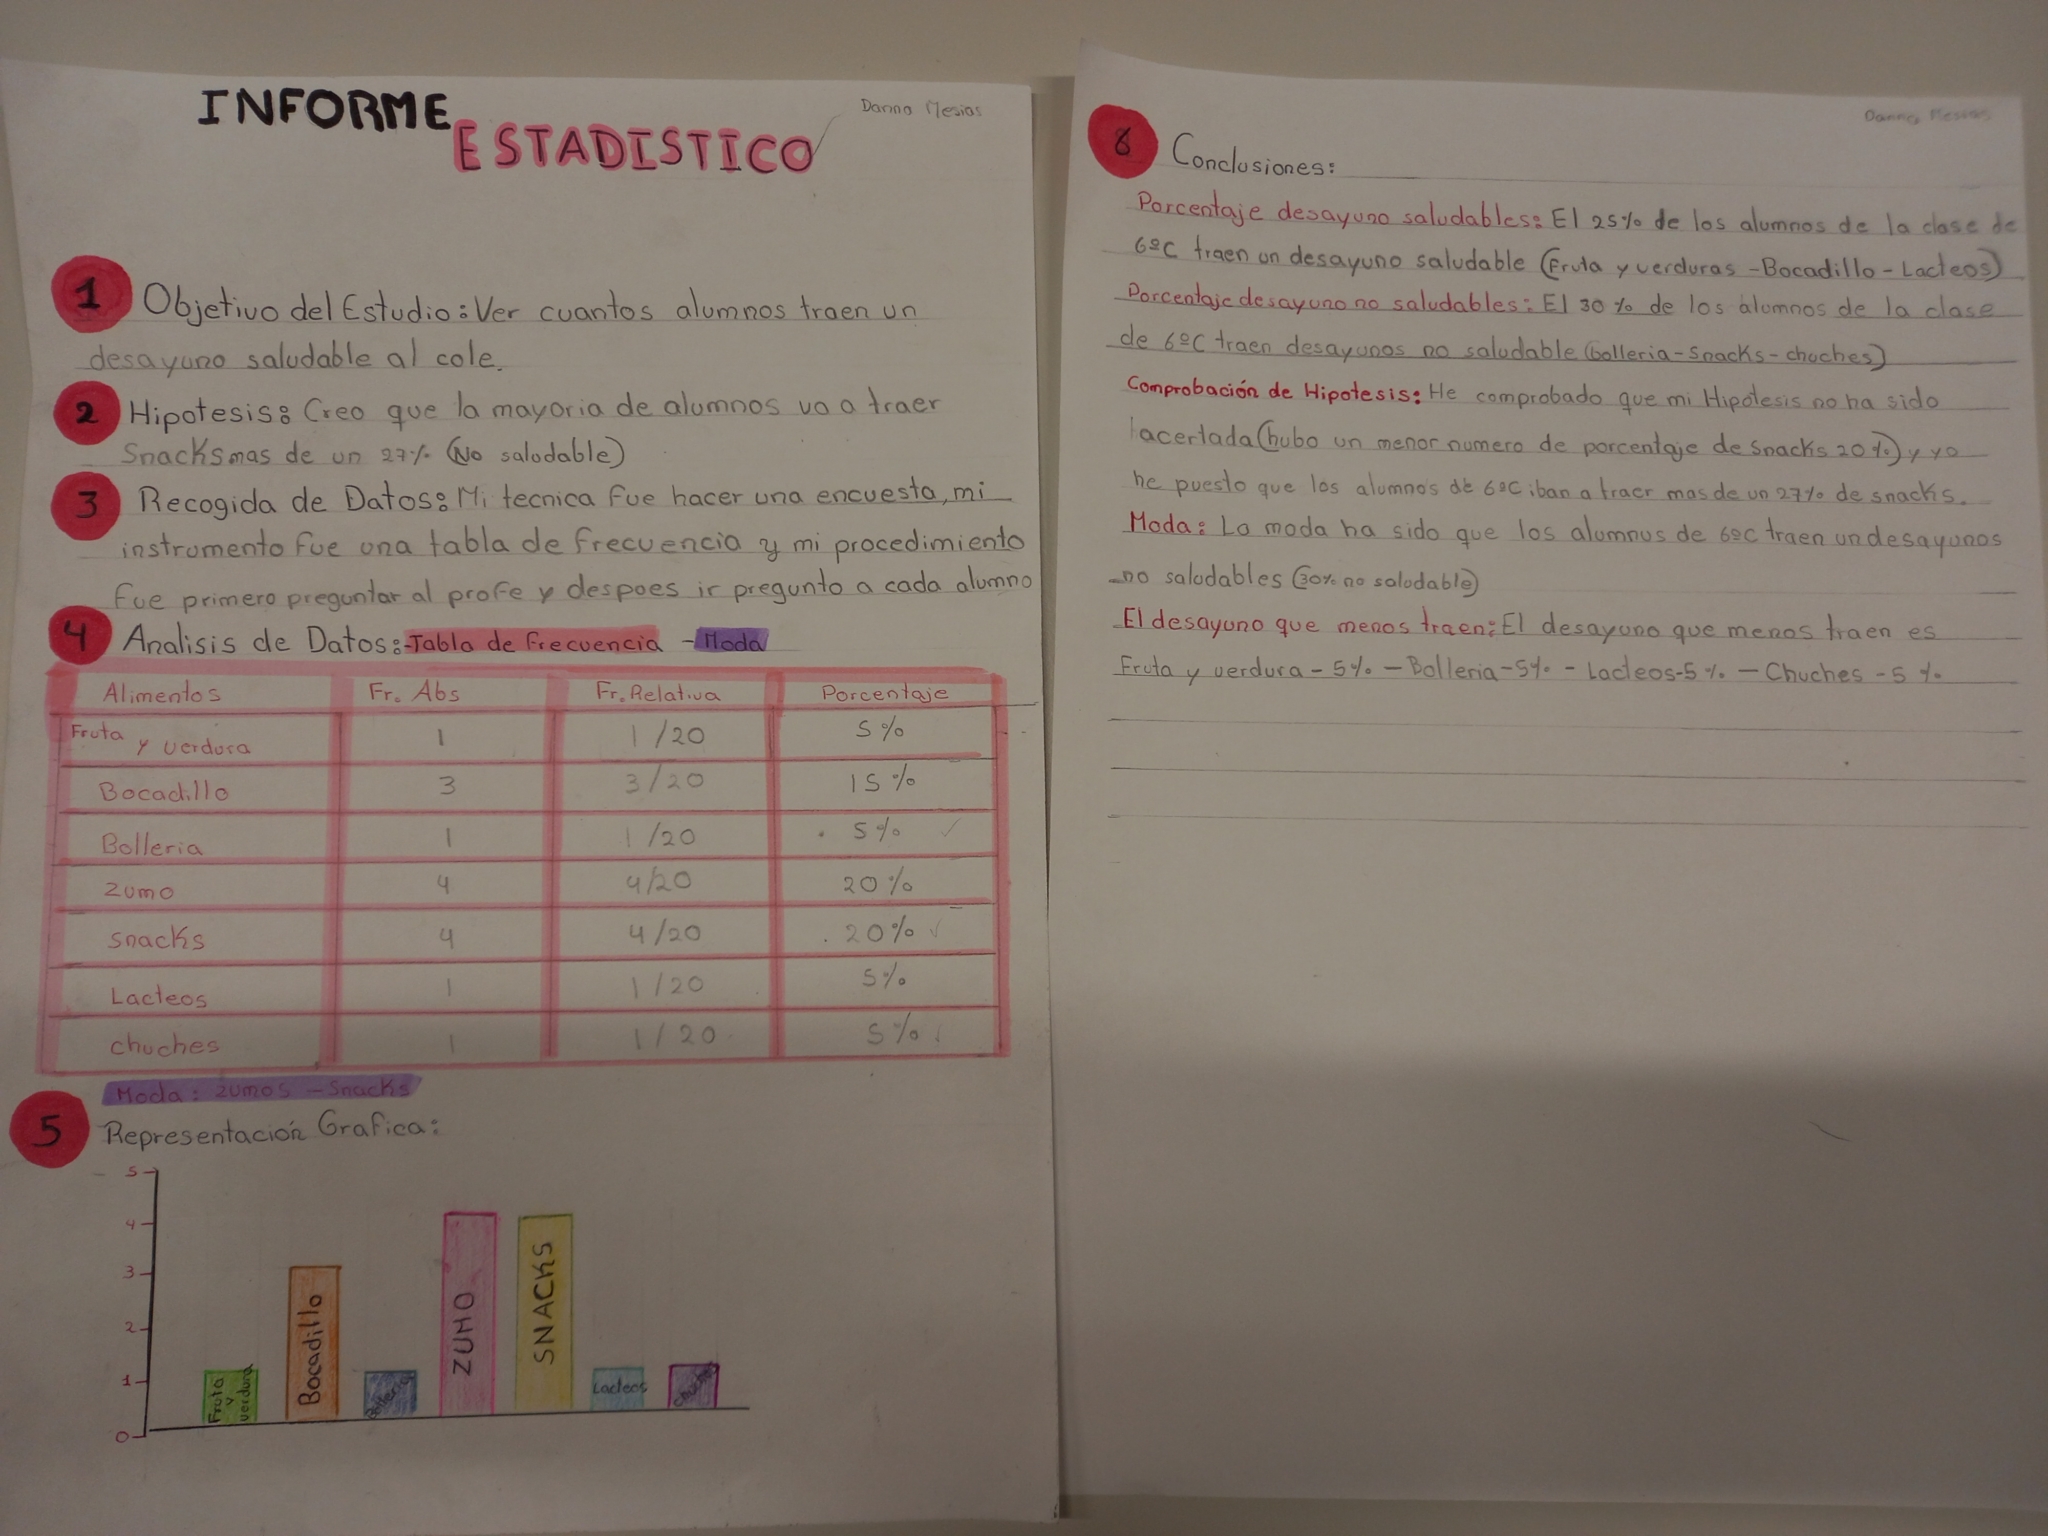 INFORME
ESTADISTICO
Danna Mesias
1 Objetivo del Estudio: Ver cuantos alumnos traen un
desayuno saludable al cole.
2 Hipotesis: Creo que la mayoria de alumnos va a traer
Snacks mas de un 27% (No saludable)
3 Recogida de Datos: Mi tecnica fue hacer una encuesta, mi
instrumento fue una tabla de frecuencia y mi procedimiento
fue primero preguntar al profe y despoes ir pregunto a cada alumno
4 Analisis de Datos:-Tabla de Frecuencia - Moda
Alimentos Fr. Abs Fr. Relativa Porcentaje
Fruta y verdura 1 1/20 5%
Bocadillo 3 3/20 15%
Bolleria 1 1/20 5%
zumo 4 4/20 20%
snacks 4 4/20 20%
Lacteos 1 1/20 5%
chuches 1 1/20 5%
Moda: zumos - Snacks
5 Representación Grafica:
5
4
3
2
1
0
Fruta y verdura
Bocadillo
Bolleria
ZUMO
SNACKS
Lacteos
Chuches
Danna Mesias
6 Conclusiones:
Porcentaje desayuno saludables: El 25% de los alumnos de la clase de
6ºC traen un desayuno saludable (Fruta y verduras - Bocadillo - Lacteos)
Porcentaje desayuno no saludables: El 30% de los alumnos de la clase
de 6ºC traen desayunos no saludable (bolleria - Snacks - chuches)
Comprobación de Hipotesis: He comprobado que mi Hipotesis no ha sido
acertada (hubo un menor numero de porcentaje de Snacks 20%) y yo
he puesto que los alumnos de 6ºC iban a traer mas de un 27% de snacks.
Moda: La moda ha sido que los alumnos de 6ºC traen un desayunos
no saludables (30% no saludable)
El desayuno que menos traen: El desayuno que menos traen es
Fruta y verdura - 5% - Bolleria - 5% - Lacteos - 5% - Chuches - 5%